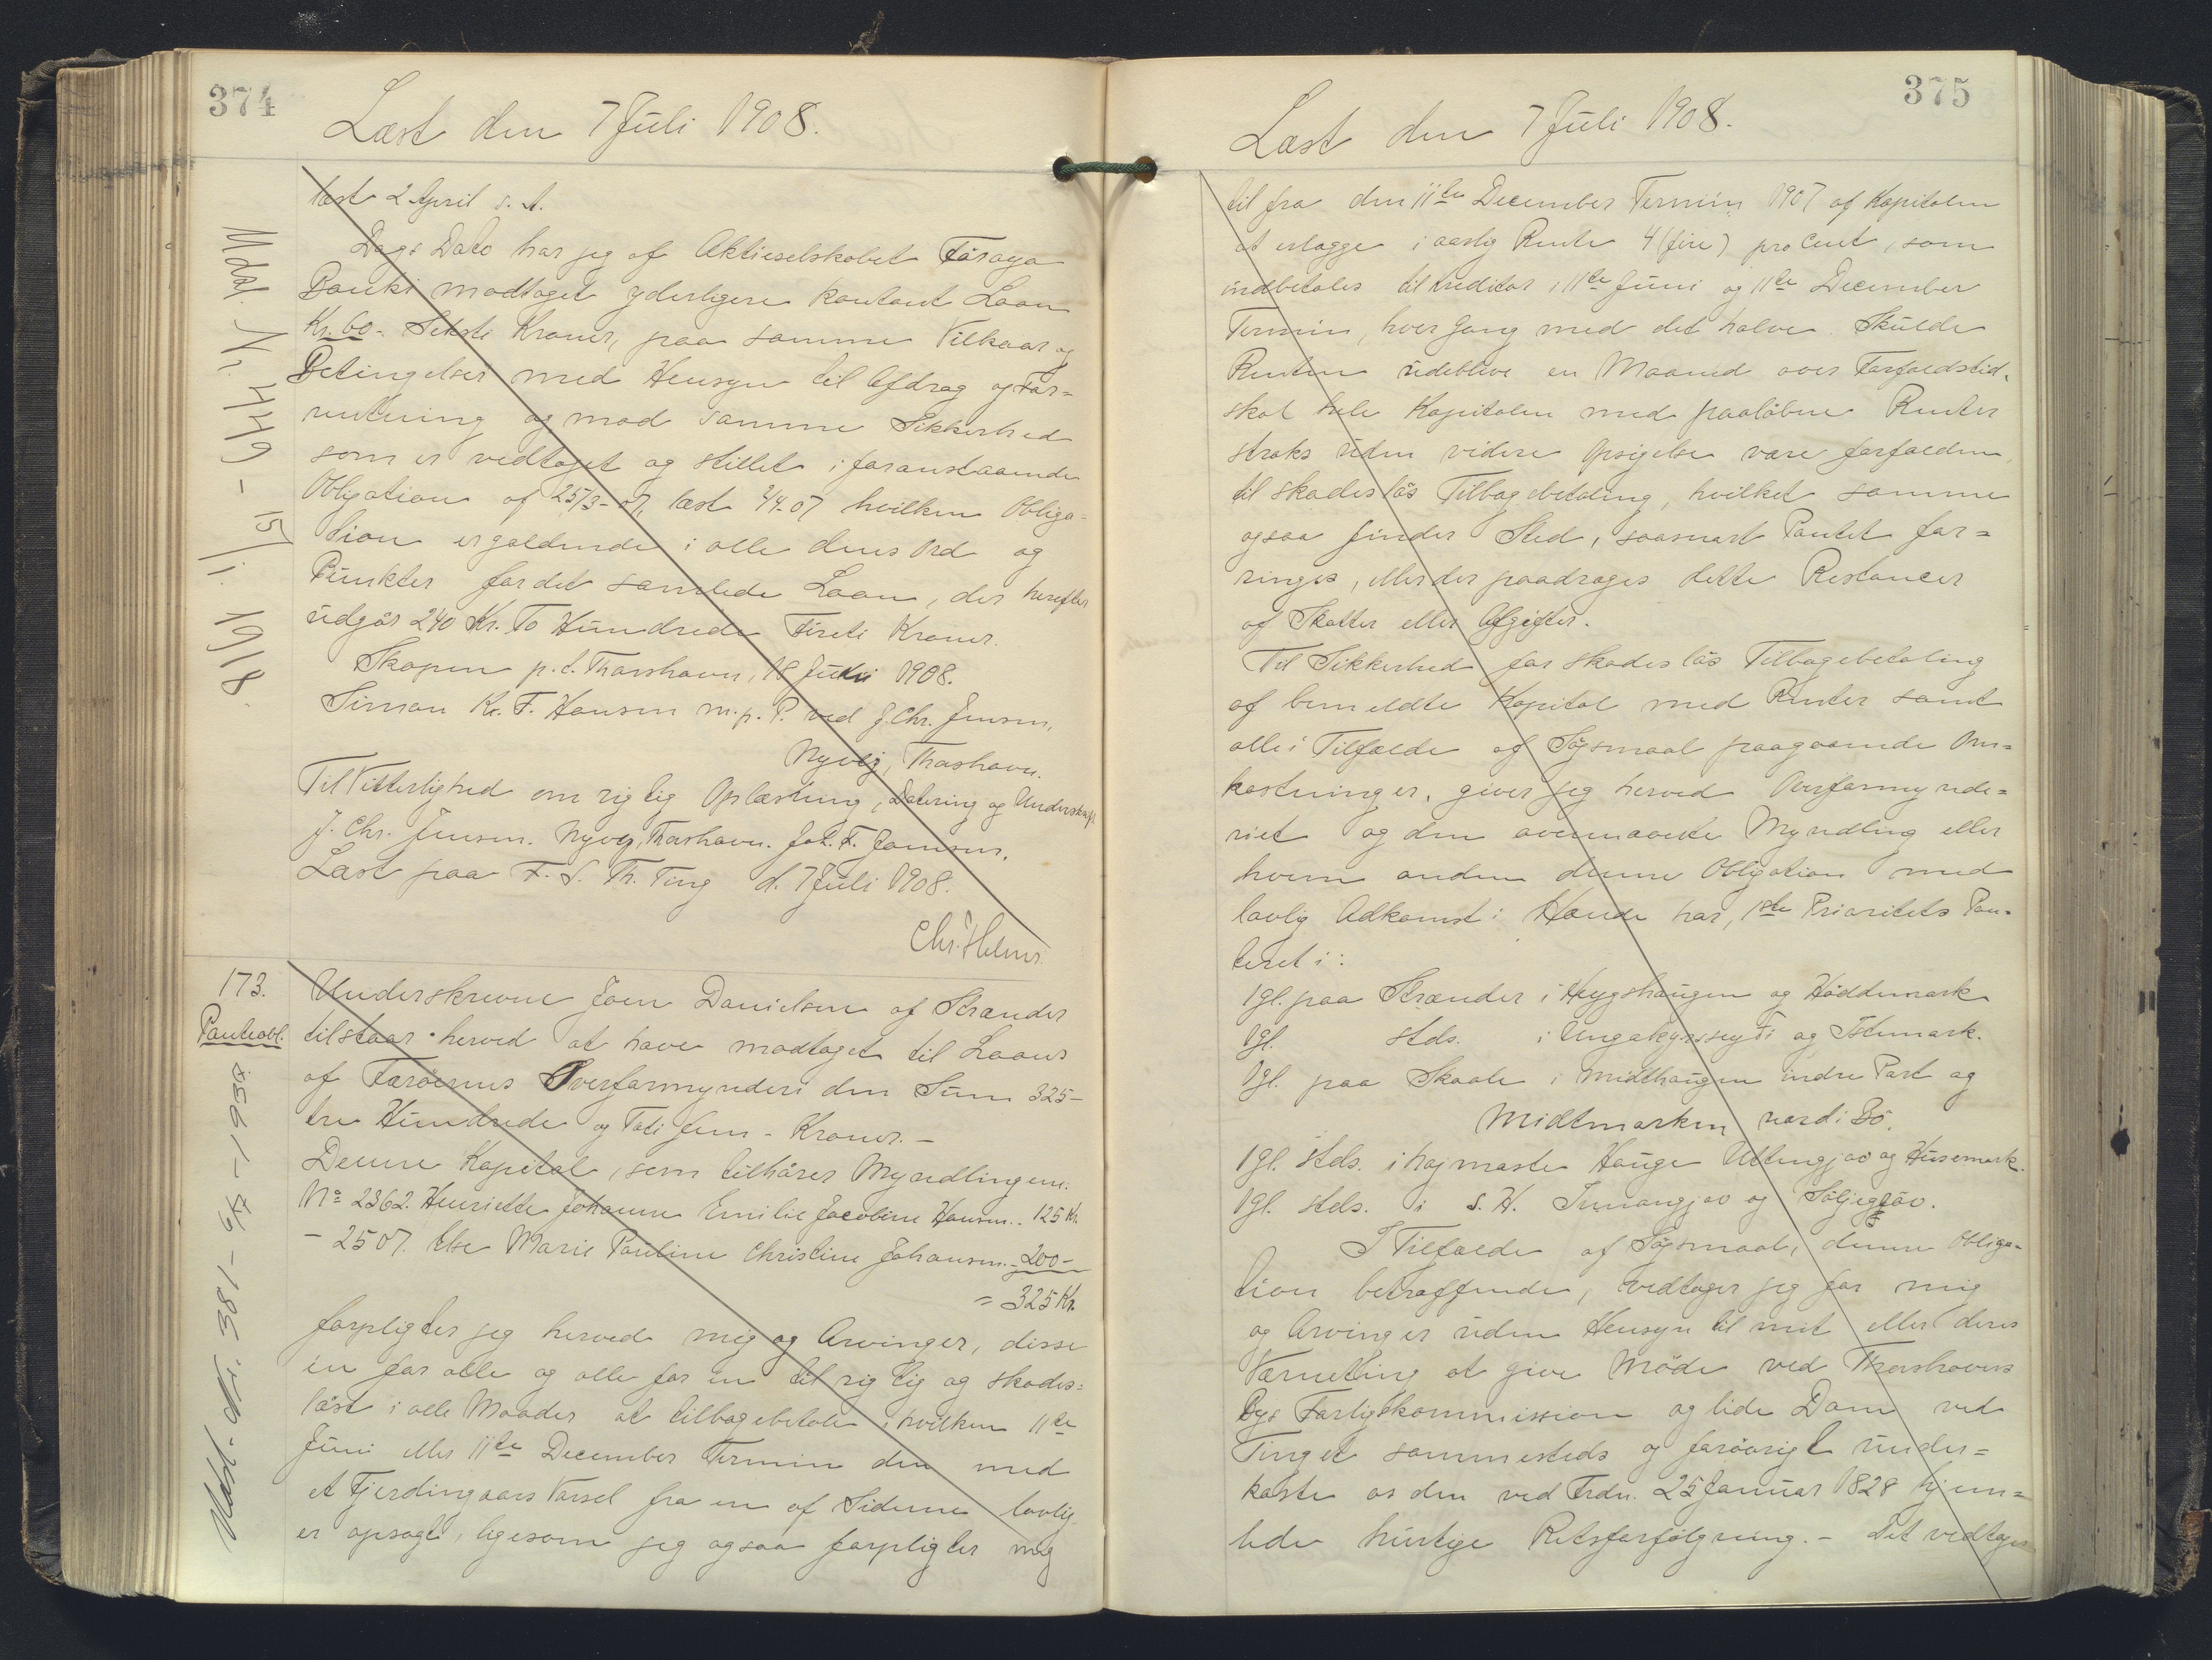 374
Læst den 7 Juli 1908.
læst 2 April s. A.
Dags Dato har jeg af Aktieselskabet Føroya
Banki modtaget yderligere kontant Laan
Kr. 60 - Seksti Kroner, paa samme Vilkaar og
Betingelser med Hensyn til Afdrag og For=
rentning og mod samme Sikkerhed
som er vedtaget og stillet i foranstaaende
Obligation af 25/3-07, læst 2/4-07 hvilken Obliga-
tion er gældende i alle dens Ord og
Punkter for det samlede Laan, der herefter
udgør 240 Kr. To Hundrede Fireti Kroner.
Skopen p. t. Thorshavn, 18 Juni 1908.
Simon Kr. F. Hansen m. p. P. ved J. Chr. Jensen,
Nyvej, Thorshavn.
Til Vitterlighed om rigtig Oplæsning, Datering og Underskrift
J. Chr. Jensen. Nyvej, Thorshavn. Joh. F. Joensen.
Læst paa F. S. Th. Ting d. 7 Juli 1908.
Chr. Helms
Udsl. Nr. 449 - 15/1. 1918.
173.
Panteobl.
Udsl. Nr. 381 - 1958
Underskrevne Joen Danielsen af Strænder
tilstaar herved at have modtaget til Laans
af Færøernes Overformynderi den Sum 325 -
tre Hundrede og Toti fem - Kroner. -
Denne Kapital, som tilhører Myndlingene:
No 2362. Henriette Johanne Emilie Jacobine Hansen.. 125 Kr.
- 2507. Else Marie Pauline Christine Johansen.. 200 -
= 325 Kr.
forpligter jeg herved mig og Arvinger, disse
en for alle og alle for en til rigtig og skades=
løst i alle Maader at tilbagebetale i hvilken 11te
Juni eller 11te December Termin den med
et Fjerdingaars Varsel fra en af Siderne lovlig
er opsagt, ligesom jeg ogsaa forpligter mig
375
Læst den 7 Juli 1908.
til fra den 11te December Termin 1907 af Kapitalen
at erlægge i aarlig Rente 4 (fire) pro Cent, som
indbetales til Kreditor i 11te Juni og 11te December
Termin, hver Gang med det halve. Skulde
Renten udeblive en Maaned over Forfaldstid,
skal hele Kapitalen med paaløbne Renter
straks uden videre Opsigelse være forfalden
til skadesløs Tilbagebetaling, hvilket samme
ogsaa finder Sted, saasnart Pantet for=
ringes, eller der paadrages dette Restancer
af Skatter eller Afgifter.
Til Sikkerhed for skadesløs Tilbagebetaling
af bemeldte Kapital med Renter samt
alle i Tilfælde af Søgsmaal paagaaende Om=
kostninger, giver jeg herved Overformynde=
riet og den ovennævnte Myndling eller
hvem anden denne Obligation med
lovlig Adkomst i Hænde har, 1ste Prioritets Pan-
teret i:
1 gl. paa Strænder i Heygshaugen og Høddemark
1 gl. stds. i Ungakyrsseyti og Istemark.
1 gl. paa Skaale i Midthaugen indre Part og
Midtmarken nord i Bø.
1 gl. stds. i højmaste Hauge Uttengjov og Husemark.
1 gl. stds. i s. H. Innangjov og Søljegjøv.
I Tilfælde af Søgsmaal, denne Obliga-
tion betræffende, vedtager jeg for mig
og Arvinger uden Hensyn til mit eller deres
Værneting at give Møde ved Thorshavns
Bys Forligskommission og lide Dom ved
Tinget sammesteds og forøvrigt under=
kaste os den ved Frdn. 25 Januar 1828 hjem=
lede hurtige Retsforfølgning. - Det vedtages